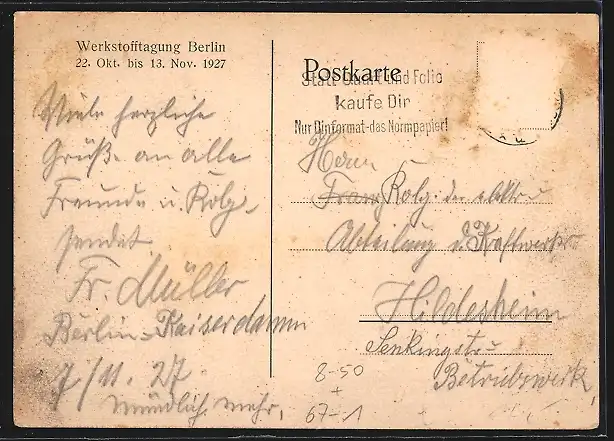 Werkstofftagung Berlin
22. Okt. bis 13. Nov. 1927
Viele herzliche
Grüße an alle
Freunde u. Kolg.
sendet
Fr. Müller
Berlin-Kaiserdamm
7/11. 27
mündlich mehr.
Postkarte
Statt Quart und Folio
kaufe Dir
Nur Dinformat-das Normpapier!
Herrn
Kolg. der
Abteilung d. Kraftwerks
Hildesheim
Betriebswerk
8-50
+
67-1